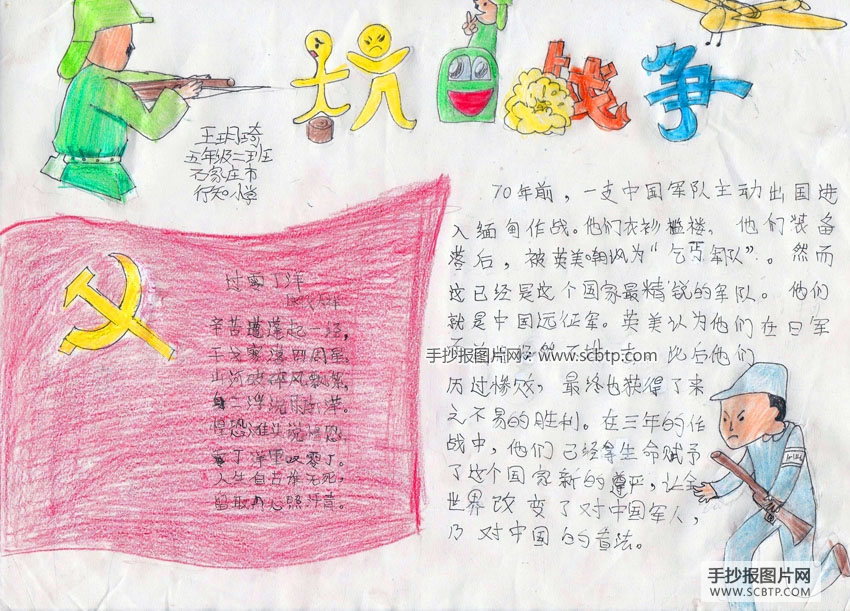 抗日战争
王玥琦
五年级二班
石家庄市
行知小学
过零丁洋
辛苦遭逢起一经,
干戈寥落四周星,
山河破碎风飘絮,
惶恐滩头说惶恐,
零丁洋里叹零丁。
人生自古谁无死,
留取丹心照汗青。
70年前，一支中国军队主动出国进
入缅甸作战。他们衣衫褴褛，他们装备
落后，被英美嘲讽为“乞丐军队”。然而
这已经是这个国家最精锐的军队。他们
就是中国远征军。英美认为他们在日军
手抄报图片网：www.scbtp.com
此后他们
历过惨败，最终也获得了来
之不易的胜利。在三年的作
战中，他们已经拿生命赋予
了这个国家新的尊严，让全
世界改变了对中国军人，
乃对中国的看法。
手抄报图片网
WWW.SCBTP.COM